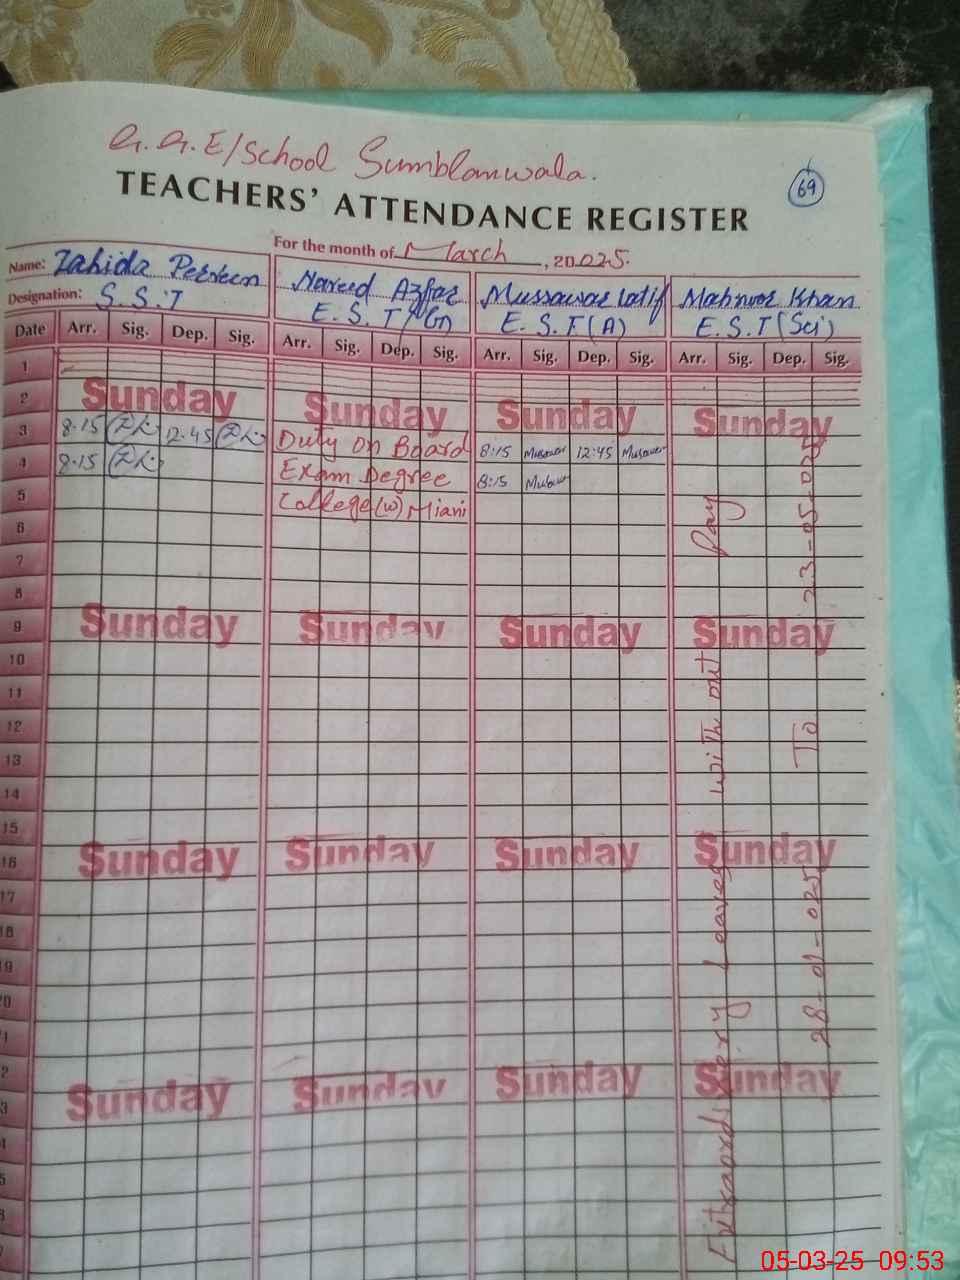 G.G.E/School Sumblanwala.
TEACHERS' ATTENDANCE REGISTER
69
For the month of March, 2025.
Name: Zahida Perveen
Naveed Azfar
Mussawar Latif
Mahnoor Khan
Designation: S.S.T
E.S.T
E.S.T(A)
E.S.T(Sci)
Date Arr. Sig. Dep. Sig. Arr. Sig. Dep. Sig. Arr. Sig. Dep. Sig. Arr. Sig. Dep. Sig.
1
2 Sunday Sunday Sunday Sunday
3 8.15 12.45 Duty on Board 8:15 12:45
4 8.15 Exam Degree 8:15
5 College(w) Miani
6
7
8
9 Sunday Sunday Sunday Sunday
10
11
12
13
14
15
16 Sunday Sunday Sunday Sunday
17
18
19
20
1
2 Sunday Sunday Sunday Sunday
3
4
5
Extraordinery Leaves with out Pay
28-01-025 To 23-05-025
05-03-25 09:53